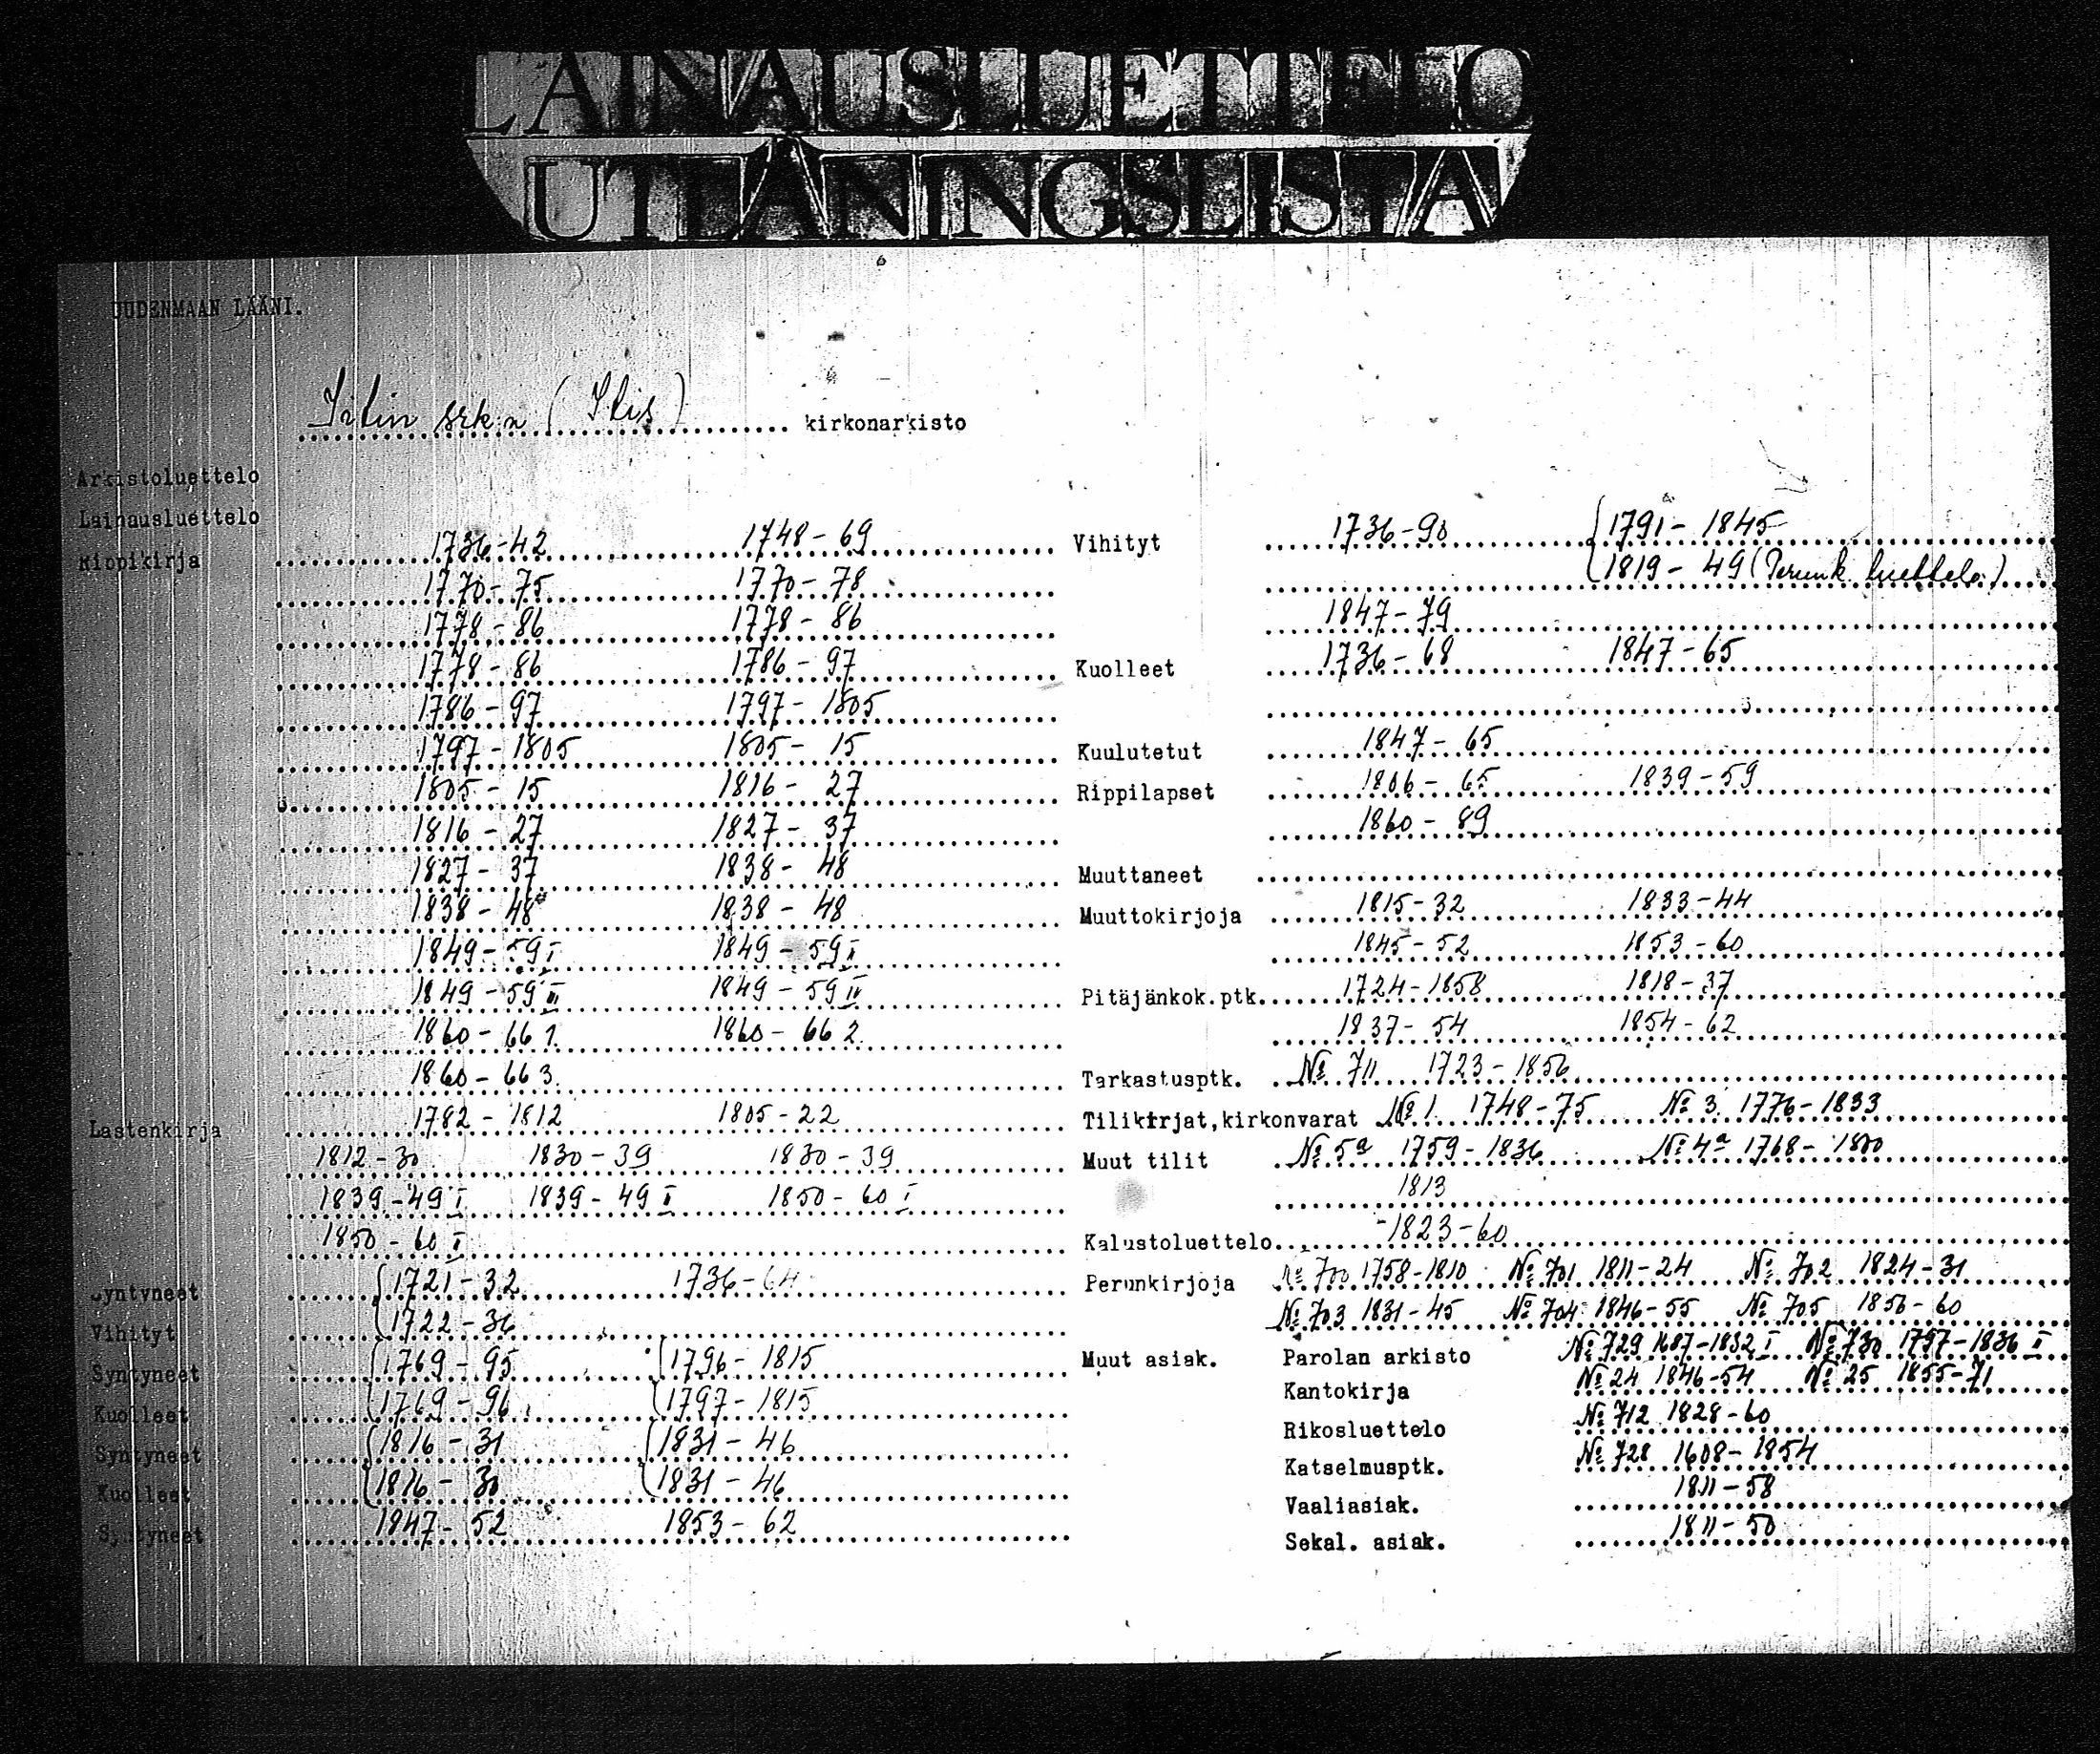 LAINAUSLUETTELO
UTLÅNINGSLISTA
UUDENMAAN LÄÄNI.
srk:n ( ) kirkonarkisto
Arkistoluettelo
Lainausluettelo
Rippikirja 1736-42 1748-69
1770-75 1770-78
1778-86 1778-86
1778-86 1786-97
1786-97 1797-1805
1797-1805 1805-15
1805-15 1816-27
1816-27 1827-37
1827-37 1838-48
1838-48 1838-48
1849-59 I 1849-59 II
1849-59 III 1849-59 IV
1860-66 1. 1860-66 2.
1860-66 3.
Lastenkirja 1782-1812 1805-22
1812-30 1830-39 1830-39
1839-49 I 1839-49 II 1850-60 I
1850-60 II
Syntyneet 1721-32 1736-64
Vihityt 1722-36
Syntyneet 1769-95 1796-1815
Kuolleet 1769-96 1797-1815
Syntyneet 1816-31 1831-46
Kuolleet 1816-30 1831-46
Syntyneet 1847-52 1853-62
Vihityt 1736-90 1791-1845
1819-49 (Perunk. luettelo)
1847-79
Kuolleet 1736-68 1847-65
Kuulutetut 1847-65
Rippilapset 1806-65 1839-59
1860-89
Muuttaneet
Muuttokirjoja 1815-32 1833-44
1845-52 1853-60
Pitäjänkok.ptk. 1724-1858 1818-37
1837-54 1854-62
Tarkastusptk. № 711 1723-1856
Tilikirjat,kirkonvarat № 1. 1748-75 № 3. 1776-1833
Muut tilit № 5a 1759-1836 № 4a 1768-1800
1813
Kalustoluettelo 1823-60
Perunkirjoja № 700 1758-1810 № 701 1811-24 № 702 1824-31
№ 703 1831-45 № 704 1846-55 № 705 1856-60
Muut asiak. Parolan arkisto № 729 1687-1832 I № 730 1797-1836 II
Kantokirja № 24 1846-54 № 25 1855-71
Rikosluettelo № 712 1828-60
Katselmusptk. № 728 1608-1854
Vaaliasiak. 1811-58
Sekal. asiak. 1811-50